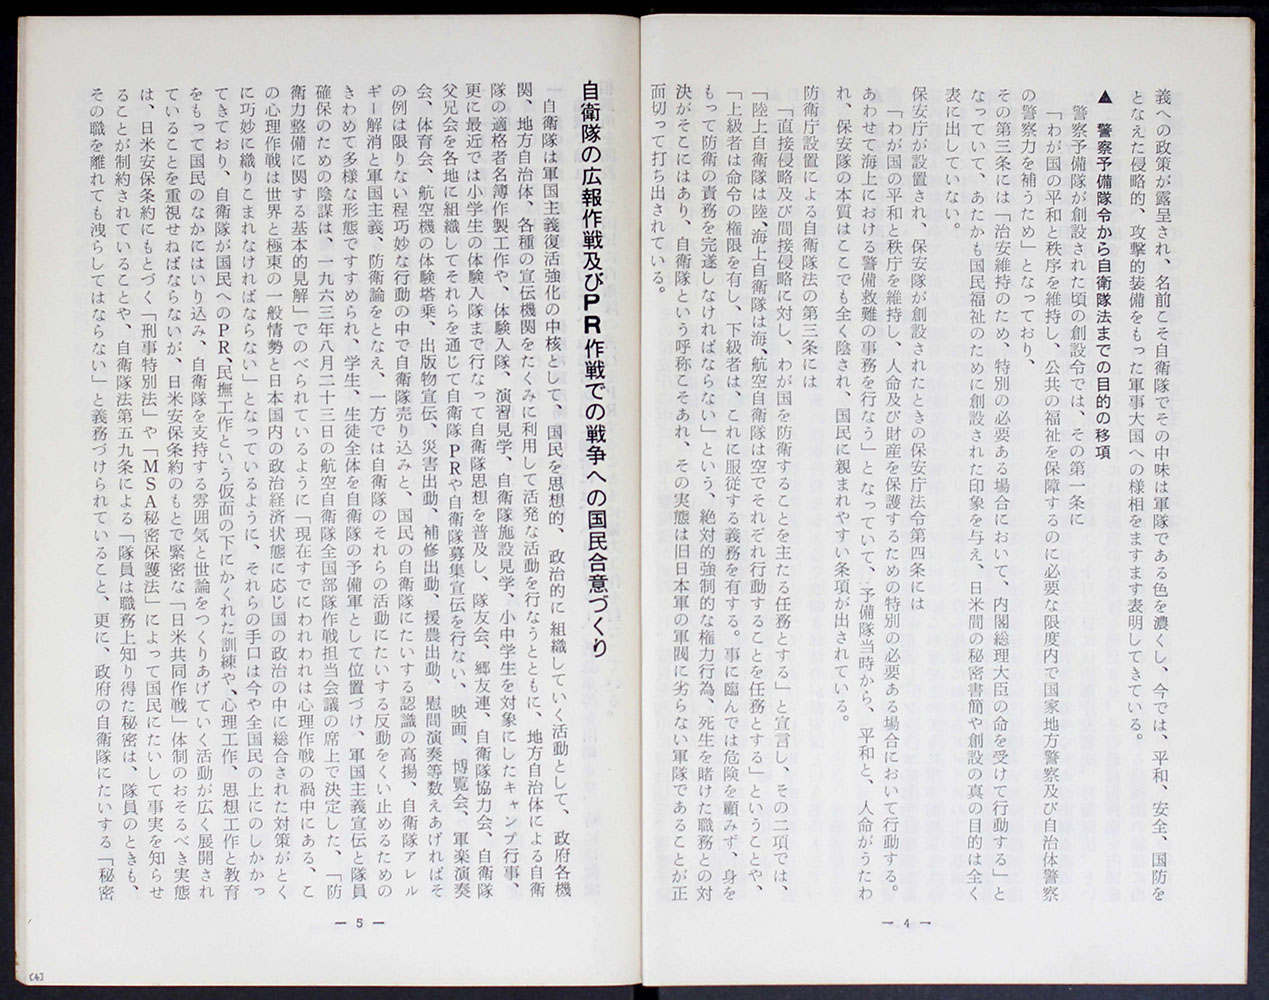 義への政策が露呈され、名前こそ自衛隊でその中味は軍隊である色を濃くし、今では、平和、安全、国防を
となえた侵略的、攻撃的装備をもった軍事大国への様相をますます表明してきている。
▲ 警察予備隊令から自衛隊法までの目的の移項
警察予備隊が創設された頃の創設令では、その第一条に
「わが国の平和と秩序を維持し、公共の福祉を保障するのに必要な限度内で国家地方警察及び自治体警察
の警察力を補うため」となっており、
その第三条には「治安維持のため、特別の必要ある場合において、内閣総理大臣の命を受けて行動する」と
なっていて、あたかも国民福祉のために創設された印象を与え、日米間の秘密書簡や創設の真の目的は全く
表に出していない。
保安庁が設置され、保安隊が創設されたときの保安庁法令第四条には
「わが国の平和と秩序を維持し、人命及び財産を保護するための特別の必要ある場合において行動する。
あわせて海上における警備救難の事務を行なう」となっていて、予備隊当時から、平和と、人命がうたわ
れ、保安隊の本質はここでも全く陰され、国民に親まれやすい条項が出されている。
防衛庁設置による自衛隊法の第三条には
「直接侵略及び間接侵略に対し、わが国を防衛することを主たる任務とする」と宣言し、その二項では、
「陸上自衛隊は陸、海上自衛隊は海、航空自衛隊は空でそれぞれ行動することを任務とする」ということや、
「上級者は命令の権限を有し、下級者は、これに服従する義務を有する。事に臨んでは危険を顧みず、身を
もって防衛の責務を完遂しなければならない」という、絶対的強制的な権力行為、死生を賭けた職務との対
決がそこにはあり、自衛隊という呼称こそあれ、その実態は旧日本軍の軍閥に劣らない軍隊であることが正
面切って打ち出されている。
— 4 —
自衛隊の広報作戦及びPR作戦での戦争への国民合意づくり
自衛隊は軍国主義復活強化の中核として、国民を思想的、政治的に組織していく活動として、政府各機
関、地方自治体、各種の宣伝機関をたくみに利用して活発な活動を行なうとともに、地方自治体による自衛
隊の適格者名簿作製工作や、体験入隊、演習見学、自衛隊施設見学、小中学生を対象にしたキャンプ行事、
更に最近では小学生の体験入隊まで行なって自衛隊思想を普及し、隊友会、郷友連、自衛隊協力会、自衛隊
父兄会を各地に組織してそれらを通じて自衛隊PRや自衛隊募集宣伝を行ない、映画、博覧会、軍楽演奏
会、体育会、航空機の体験塔乗、出版物宣伝、災害出動、補修出動、援農出動、慰問演奏等数えあげればそ
の例は限りない程巧妙な行動の中で自衛隊売り込みと、国民の自衛隊にたいする認識の高揚、自衛隊アレル
ギー解消と軍国主義、防衛論をとなえ、一方では自衛隊のそれらの活動にたいする反動をくい止めるための
きわめて多様な形態ですすめられ、学生、生徒全体を自衛隊の予備軍として位置づけ、軍国主義宣伝と隊員
確保のための陰謀は、一九六三年八月二十三日の航空自衛隊全国部隊作戦担当会議の席上で決定した、「防
衛力整備に関する基本的見解」でのべられているように「現在すでにわれわれは心理作戦の渦中にある、こ
の心理作戦は世界と極東の一般情勢と日本国内の政治経済状態に応じ国の政治の中に総合された対策がとく
に巧妙に織りこまれなければならない」となっているように、それらの手口は今や全国民の上にのしかかっ
てきており、自衛隊が国民へのPR、民撫工作という仮面の下にかくれた訓練や、心理工作、思想工作と教育
をもって国民のなかにはいり込み、自衛隊を支持する雰囲気と世論をつくりあげていく活動が広く展開され
ていることを重視せねばならないが、日米安保条約のもとで緊密な「日米共同作戦」体制のおそるべき実態
は、日米安保条約にもとづく「刑事特別法」や「MSA秘密保護法」によって国民にたいして事実を知らせ
ることが制約されていることや、自衛隊法第五九条による「隊員は職務上知り得た秘密は、隊員のときも、
その職を離れても洩らしてはならない」と義務づけられていること、更に、政府の自衛隊にたいする「秘密
— 5 —
[4]